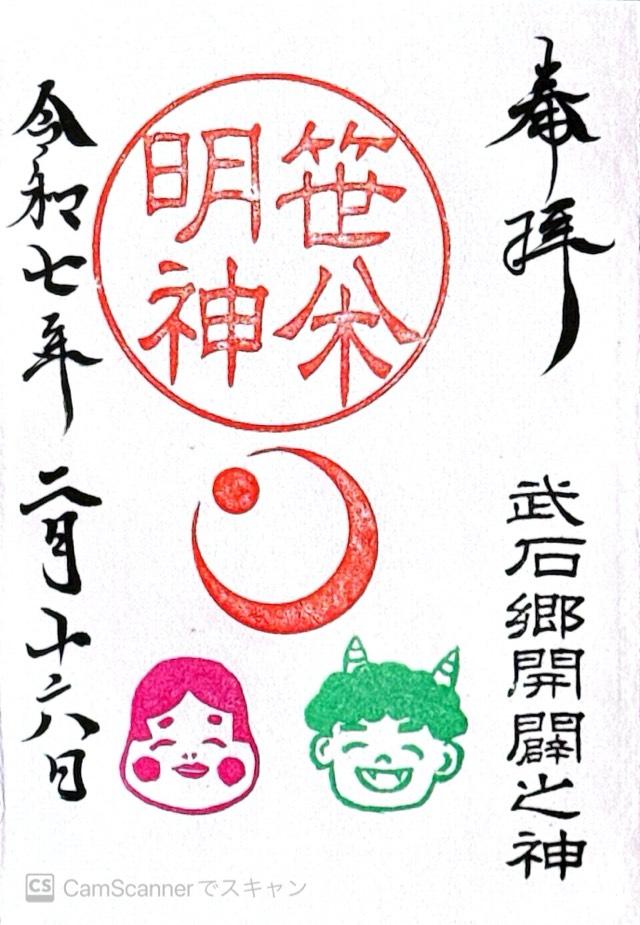 奉拝
武石郷開闢之神
笹
明神
令和七年二月十六日
CS CamScannerでスキャン